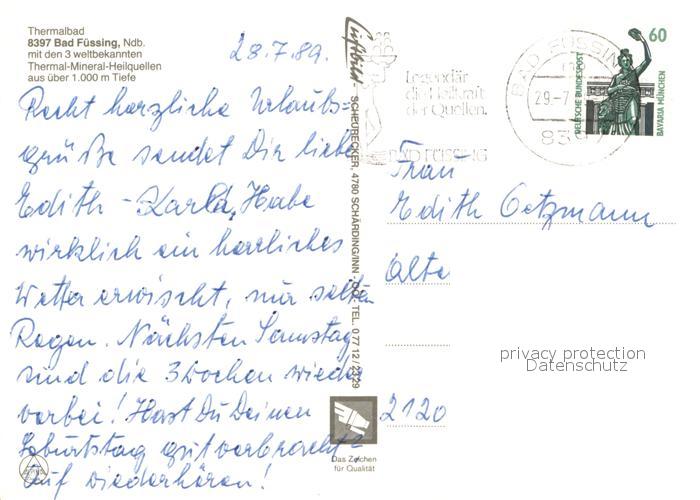 Thermalbad
8397 Bad Füssing, Ndb.
mit den 3 weltbekannten
Thermal-Mineral-Heilquellen
aus über 1.000 m Tiefe
28.7.89.
Recht herzliche Urlaubs=
grüße sendet Dir liebe
Edith - Karla, Habe
wirklich ein herrliches
Wetter erwischt, nur selten
Regen. Nächsten Samstag
sind die 3 Wochen wieder
vorbei! Hast Du Deinen
Geburtstag gut verbracht?
Auf wiederhören!
Luftbild
SCHEURECKER, 4780 SCHÄRDING/INN
TEL. 0 77 12 / 2329
Das Zeichen
für Qualität
Legendär
die Heilkraft
der Quellen.
BAD FÜSSING
BAD FÜSSING
29.-7
839
60
DEUTSCHE BUNDESPOST
BAVARIA MÜNCHEN
Frau
Edith Oetzmann
Alte
2120
privacy protection
Datenschutz